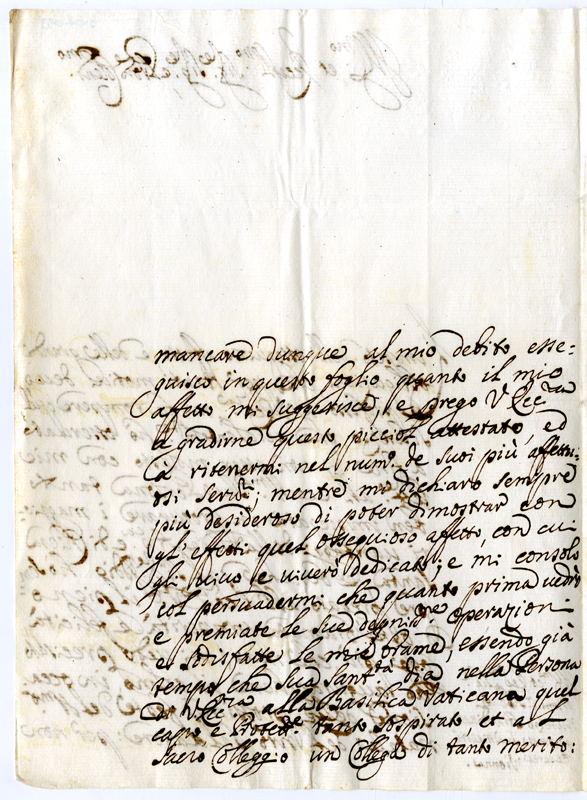 mancare dunque al mio debito esse-
guisco in questo foglio quanto il mio
affetto mi suggerisce, e prego V. Ecc.za
a gradirne questo picciol attestato, ed
à ritenermi nel num.o de suoi più affettu-
osi Serv.ri; mentre mi dichiaro sempre
più desideroso di poter dimostrar con
gl'effetti quel ossequioso affetto, con cui
gli vivo e viverò dedicato; e mi consolo
col persuadermi che quanto prima vedrò
e premiate le sue degniss.me operazion
e sodisfatte le mie brame, essendo già
tempo che sua Sant.tà dia nella Persona
di V. Ecc.za alla Basilica Vaticana quel
capo e Protett.e tanto sospirato, et al
sacro Collegio un Collega di tanto merito: